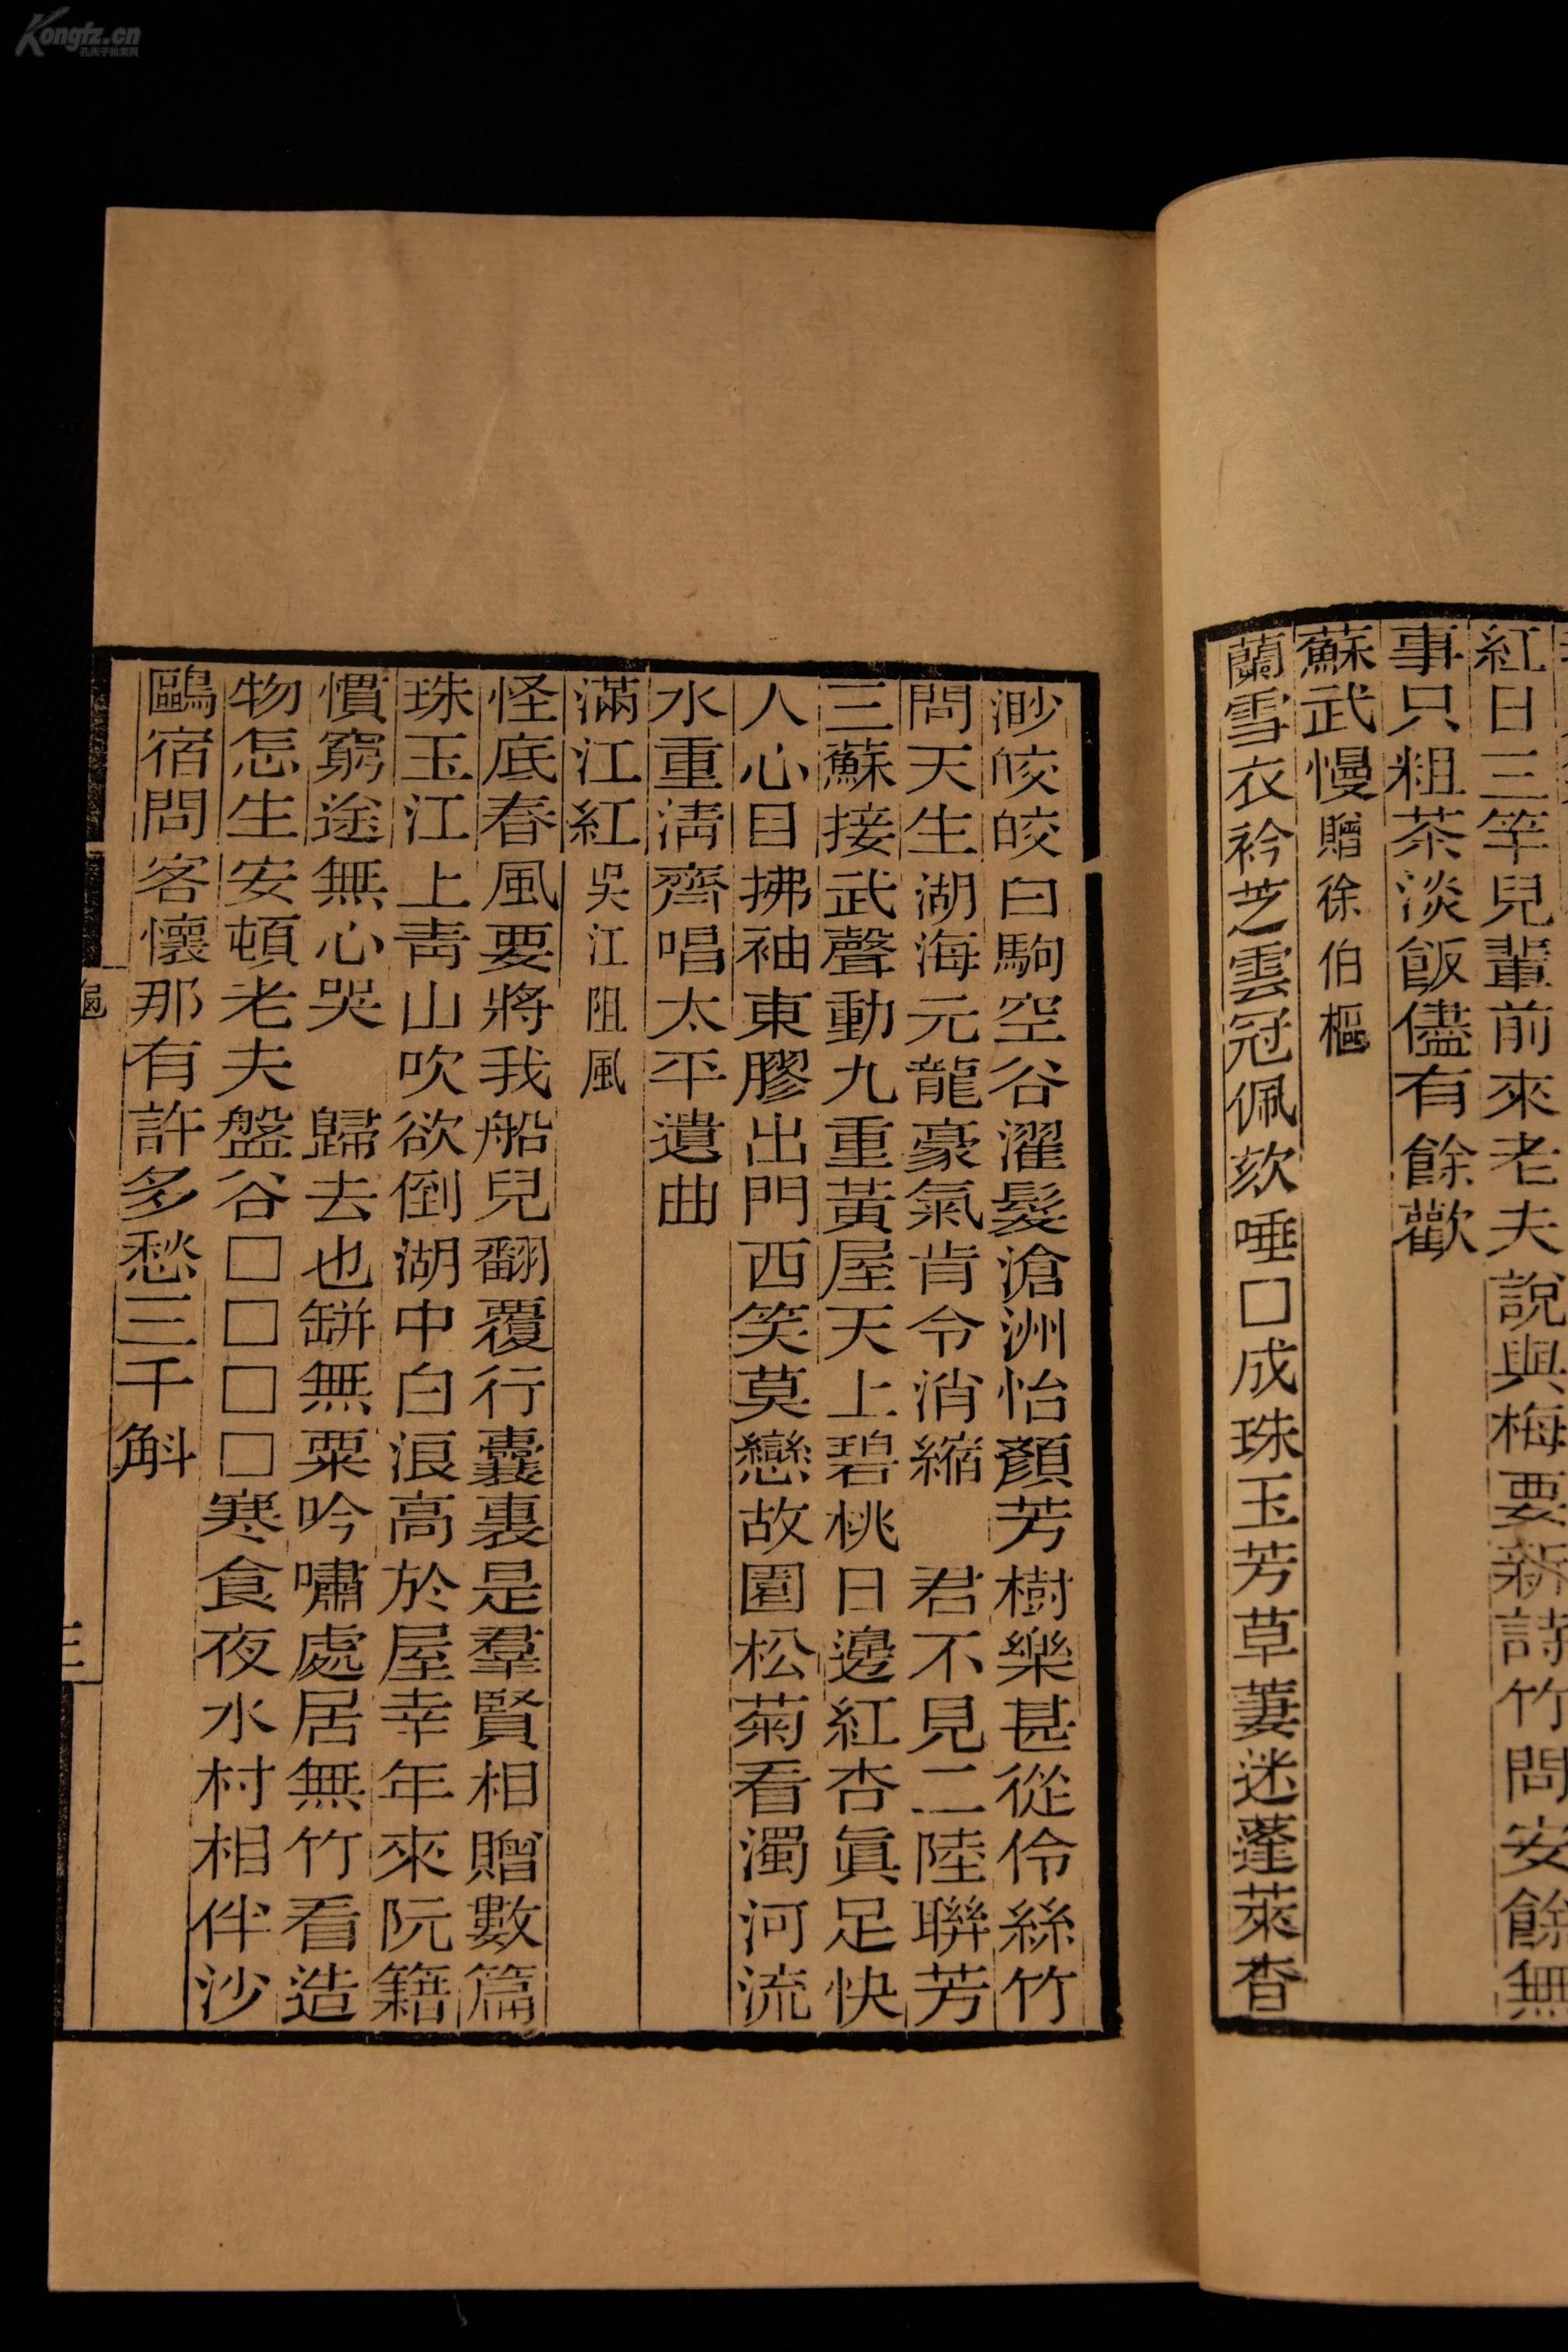 紅日三竿兒輩前來老夫說與梅要新詩竹問安餘無
事只粗茶淡飯儘有餘歡
蘇武慢贈徐伯樞
蘭雪衣衿芝雲冠佩欬唾□成珠玉芳草萋迷蓬萊杳
渺皎皎白駒空谷濯髮滄洲怡顏芳樹樂甚從伶絲竹
問天生湖海元龍豪氣肯令消縮　君不見二陸聯芳
三蘇接武聲動九重黃屋天上碧桃日邊紅杏眞足快
人心目拂袖東膠出門西笑莫戀故園松菊看濁河流
水重淸齊唱太平遺曲
滿江紅吳江阻風
怪底春風要將我船兒翻覆行囊裏是羣賢相贈數篇
珠玉江上靑山吹欲倒湖中白浪高於屋幸年來阮籍
慣窮途無心哭　歸去也缾無粟吟嘯處居無竹看造
物怎生安頓老夫盤谷□□□□寒食夜水村相伴沙
鷗宿問客懷那有許多愁三千斛
三
Kongfz.cn